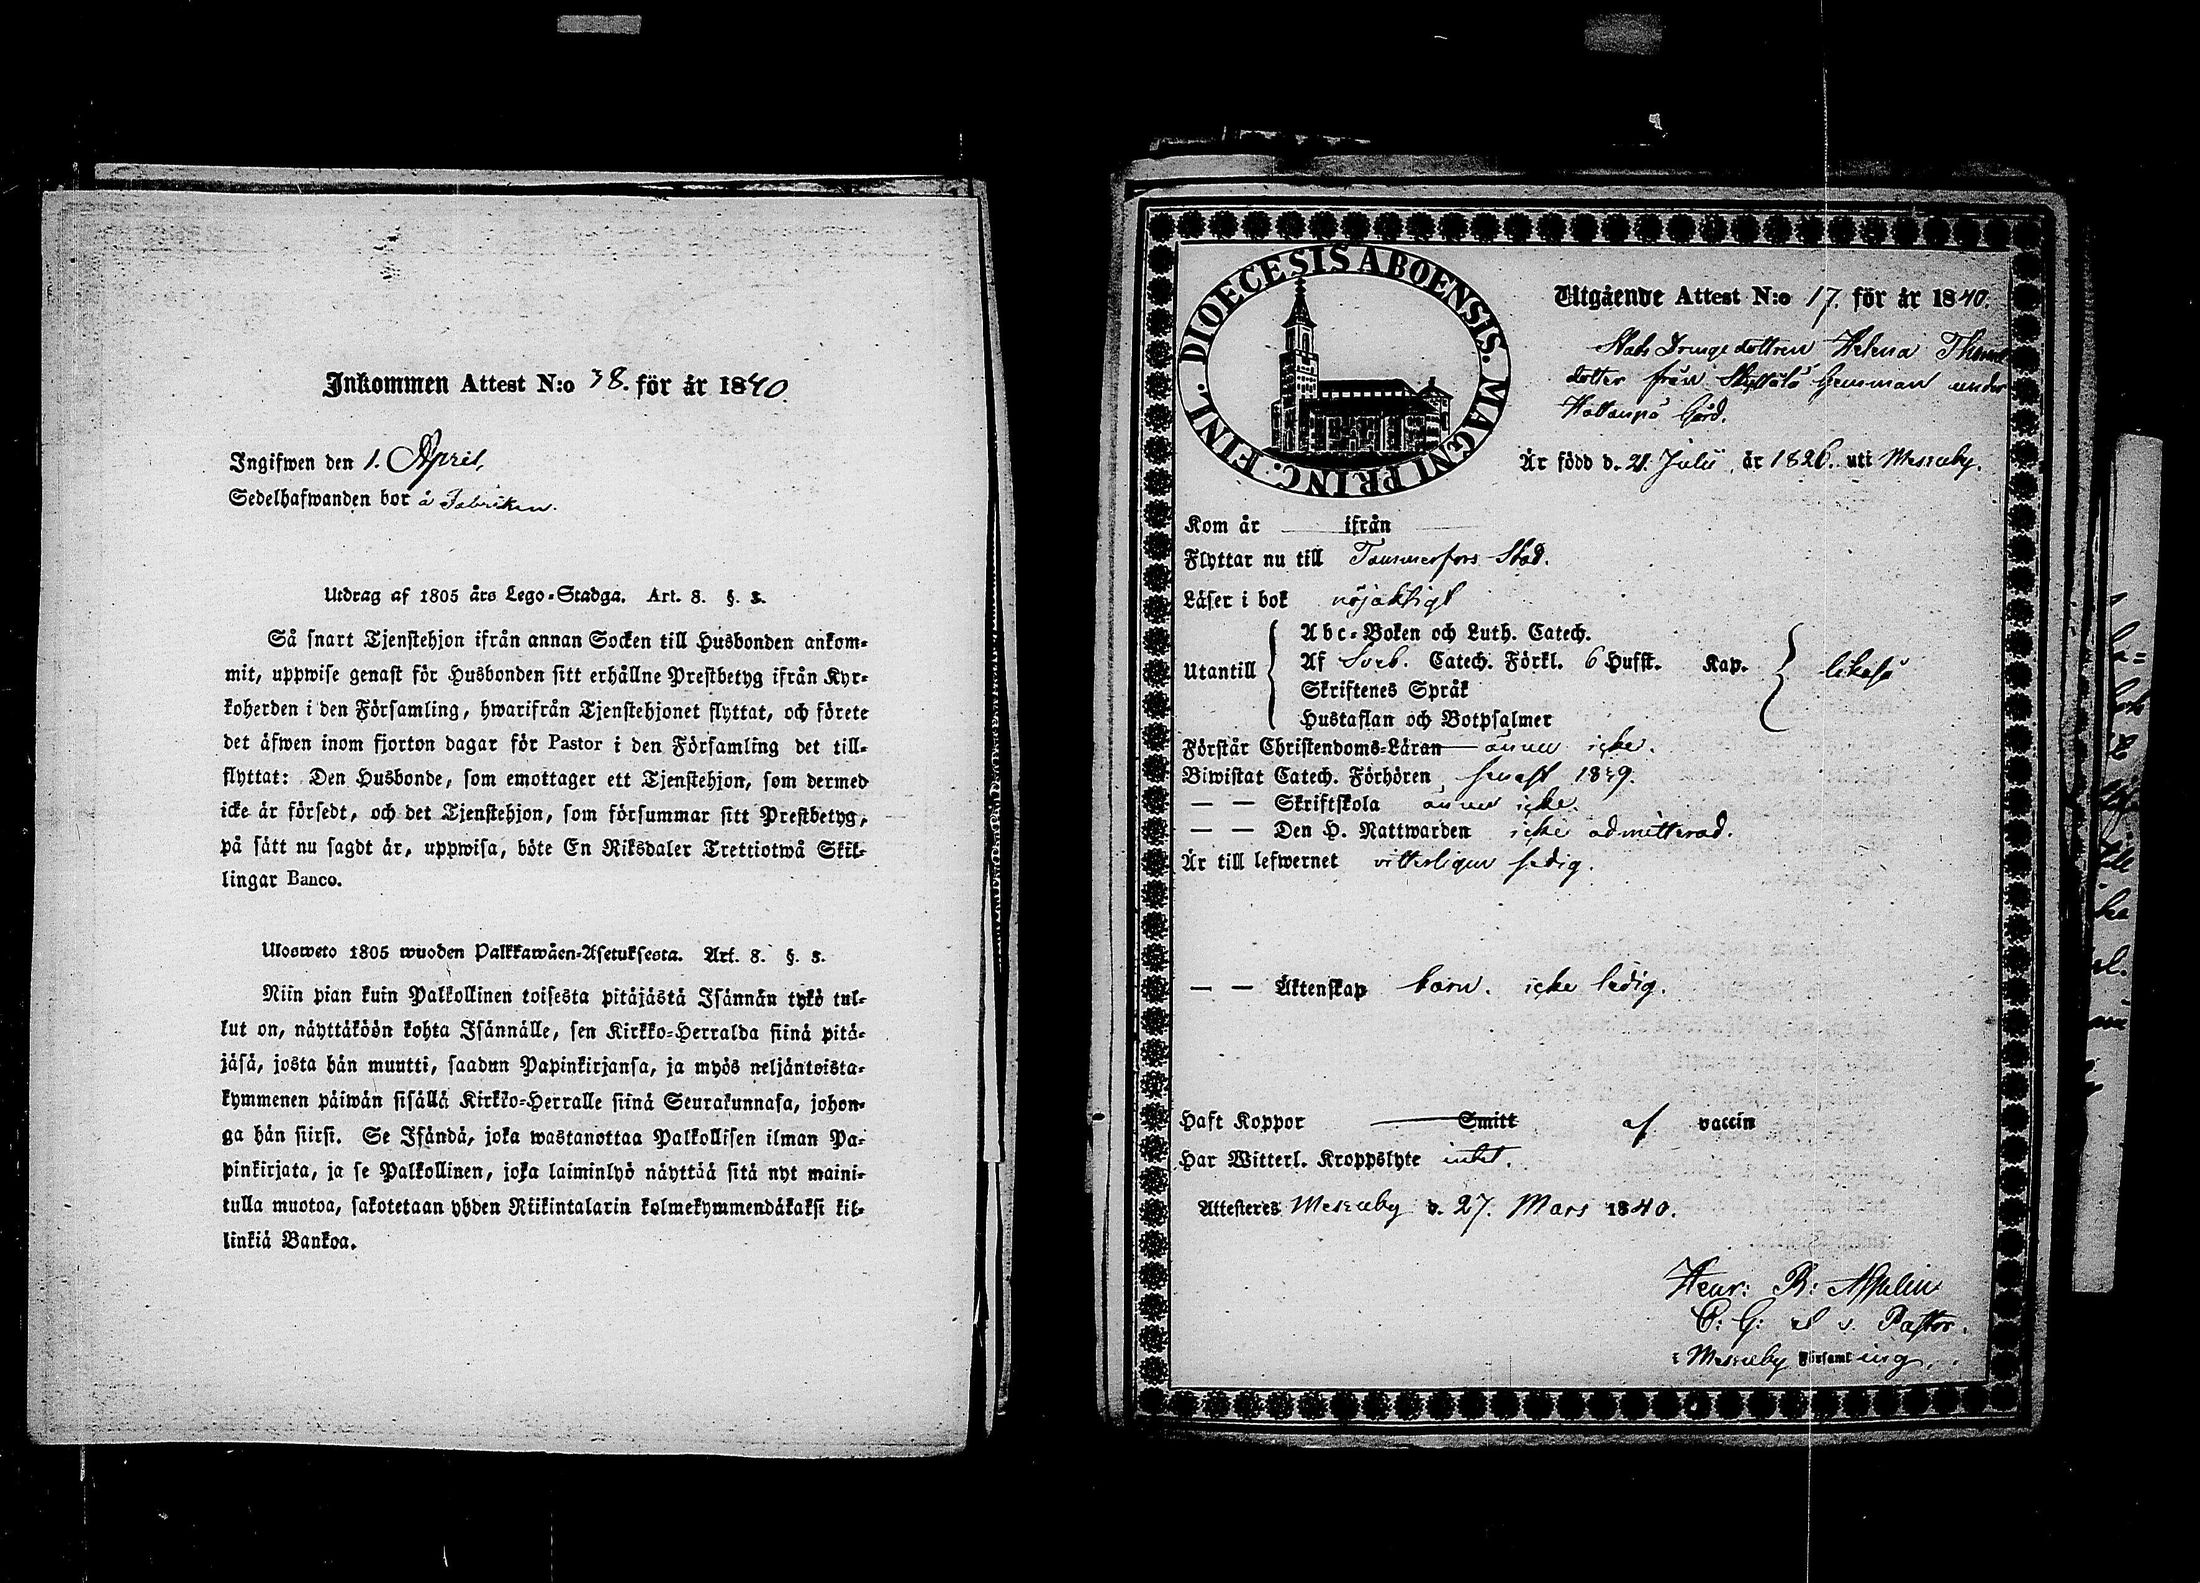 Inkommen Attest N:o 38. för år 1840.
Ingifwen den 1. April,
Sedelhafwanden bor å Fabriken.
Utdrag af 1805 års Lego-Stadga. Art. 8. §. 3.
Så snart Tjenstehjon ifrån annan Socken till Husbonden ankom-
mit, uppwise genast för Husbonden sitt erhållne Prestbetyg ifrån Kyr-
koherden i den Församling, hwarifrån Tjenstehjonet flyttat, och förete
det äfwen inom fjorton dagar för Pastor i den Församling det till-
flyttat: Den Husbonde, som emottager ett Tjenstehjon, som dermed
icke är försedt, och det Tjenstehjon, som försummar sitt Prestbetyg,
på sätt nu sagdt är, uppwisa, böte En Riksdaler Trettiotwå Skil-
lingar Banco.
Ulosweto 1805 wuoden Palkkawäen-Asetuksesta. Art. 8. §. 3.
Niin pian kuin Palkollinen toisesta pitäjästä Isännän tykö tul-
lut on, näyttäköön kohta Isännälle, sen Kirkko-Herralda siinä pitä-
jäsä, josta hän muutti, saadun Papinkirjansa, ja myös neljäntoista-
kymmenen päiwän sisällä Kirkko-Herralle siinä Seurakunnasa, johon-
ga hän siirsi. Se Isändä, joka wastanottaa Palkollisen ilman Pa-
pinkirjata, ja se Palkollinen, joka laiminlyö näyttää sitä nyt maini-
tulla muotoa, sakotetaan yhden Riikintalarin kolmekymmendäkaksi kil-
linkiä Bankoa.
DIOECESIS ABOENSIS. MAGNI PRINC. FINL.
Utgående Attest N:o 17. för år 1840.
Helena
dotter från under
Gård.
Är född d. 21. Julii, år 1826. uti Messuby.
Kom år ifrån
Flyttar nu till Tammerfors Stad.
Läser i bok nöjaktigt
Abc-Boken och Luth. Catech.
Utantill Af Sveb. Catech. Förkl. 6 Hufst. Kap. likaså
Skriftenes Språk
Hustaflan och Botpsalmer
Förstår Christendoms-Läran ännu icke.
Biwistat Catech. Förhören senast 1839.
— — Skriftskola ännu icke.
— — Den H. Nattwarden icke admitterad.
Är till lefwernet vitterligen sedig.
— — Äktenskap barn. icke ledig.
Haft Koppor Smitt af vaccin
Har Witterl. Kroppslyte intet.
Attesteres Messuby d. 27. Mars 1840.
Henr: R:
Pastor.
i Messuby Församling.